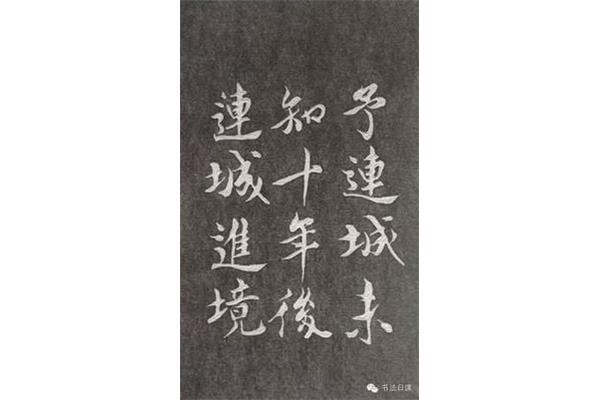 予連城未
知十年後
連城進境
书法日课